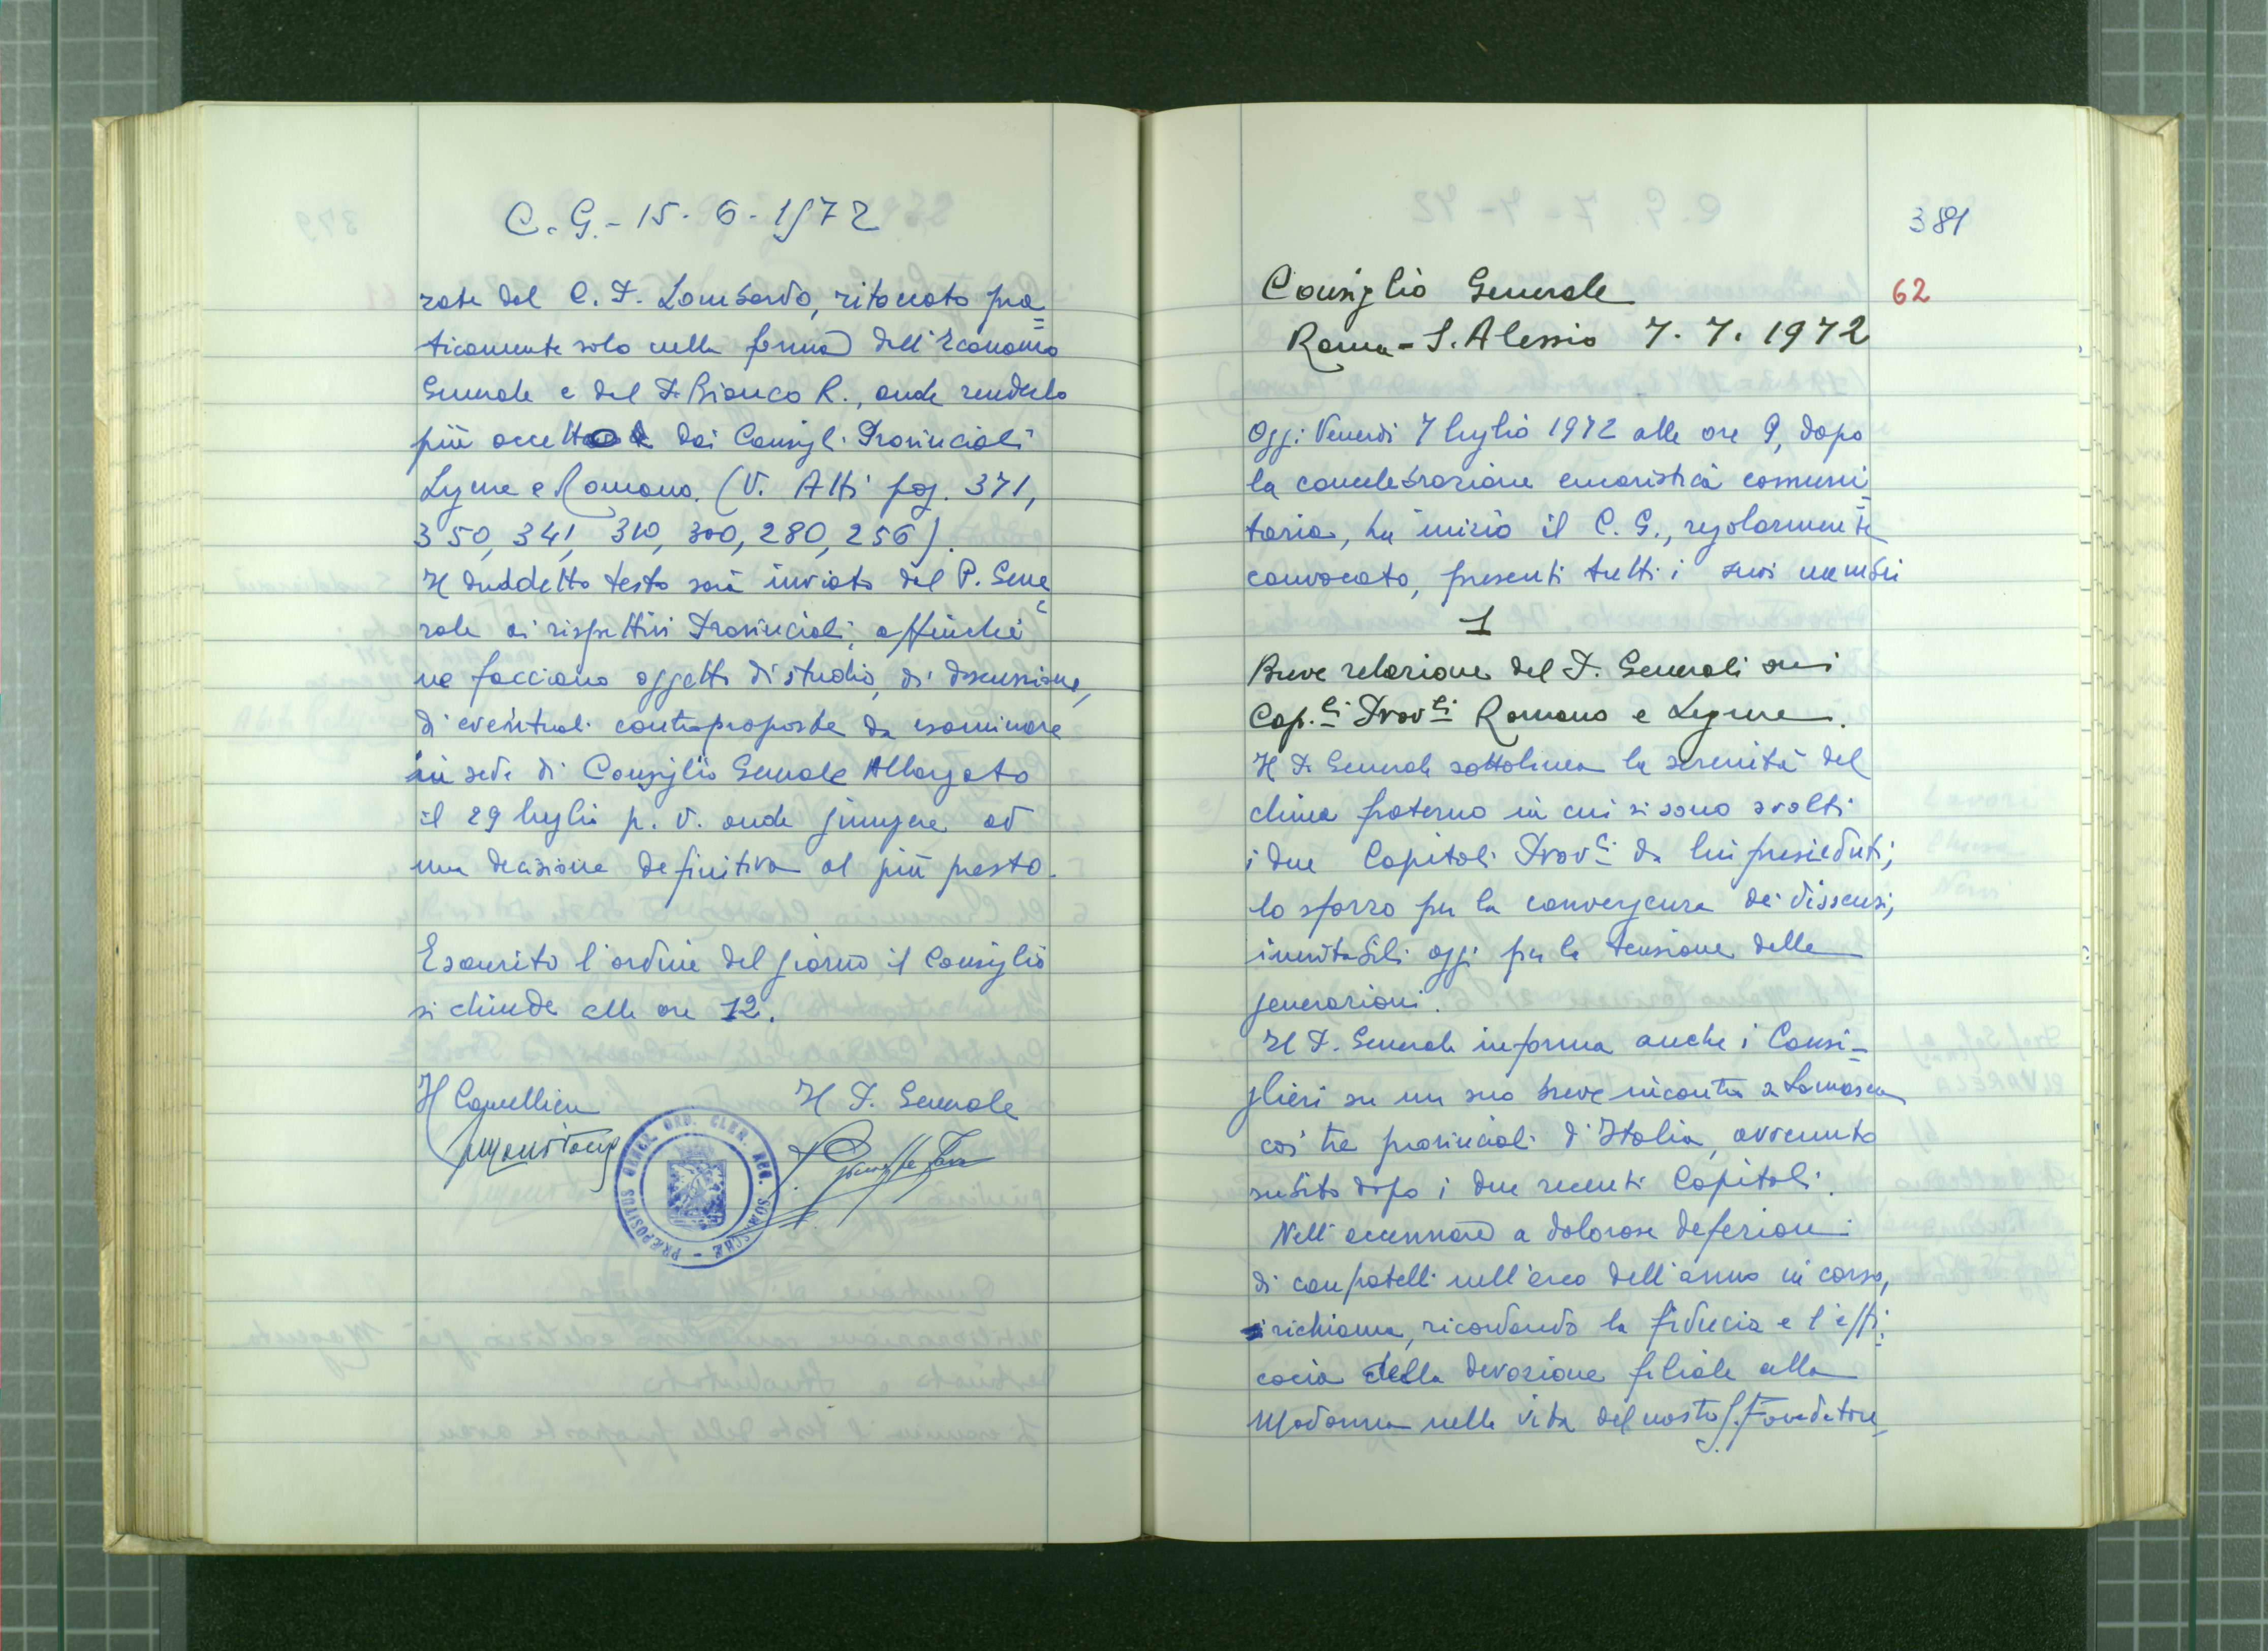 C. G. - 15. 6. 1972
rate dal C. P. Lombardo, ritoccato pra=
ticamente solo nella forma dall'Economo
Generale e dal P. Bianco R., onde renderlo
più dai Consigli Provinciali
Ligure e Romano. (V. Atti pag. 371,
350, 341, 310, 300, 280, 256).
Il suddetto testo sarà inviato dal P. Gene=
rale ai rispettivi Provinciali, affinché
ne facciano oggetto di studio, di discussione,
di eventuali controproposte da esaminare
in sede di Consiglio Generale Allargato
il 29 luglio p. v. onde giungere ad
una decisione definitiva al più presto.
Esaurito l'ordine del giorno il Consiglio
si chiude alle ore 12.
Il Cancelliere
Il P. Generale
PRÆPOSITUS GENER. ORD. CLER. REG. SOMASCHÆ
381
62
Consiglio Generale
Roma - S. Alessio 7. 7. 1972
Oggi Venerdì 7 luglio 1972 alle ore 9, dopo
la concelebrazione eucaristica comuni=
taria, ha inizio il C. G., regolarmente
convocato, presenti tutti i suoi membri
1
Breve relazione del P. Generale sui
Cap.li Prov.li Romano e Ligure.
Il P. Generale sottolinea la serenità del
clima fraterno in cui si sono svolti
i due Capitoli Prov.li da lui presieduti;
lo sforzo per la convergenza dei dissensi,
inevitabili oggi per la tensione delle
generazioni.
Il P. Generale informa anche i Consi-
glieri su un suo breve incontro a Somasca
coi tre provinciali d'Italia, avvenuto
subito dopo i due recenti Capitoli.
Nell'accennare a dolorose defezioni
di confratelli nell'arco dell'anno in corso,
richiama, ricordando la fiducia e l'effi=
cacia della devozione filiale alla
Madonna nella vita del nostro S. Fondatore,